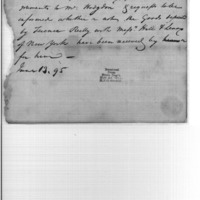 presents to Mr. Hodgdon & requests to be
informed whether or not the Goods deposited
by Terence Reilly with Messrs. Hall &
of New York have been received by
for him —
June 13. 95